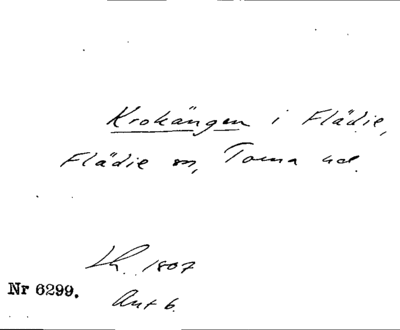 Krokängen i Flädie,
Flädie sn, Torna hd.
Lh. 1807
Nr 6299.
Akt 6.